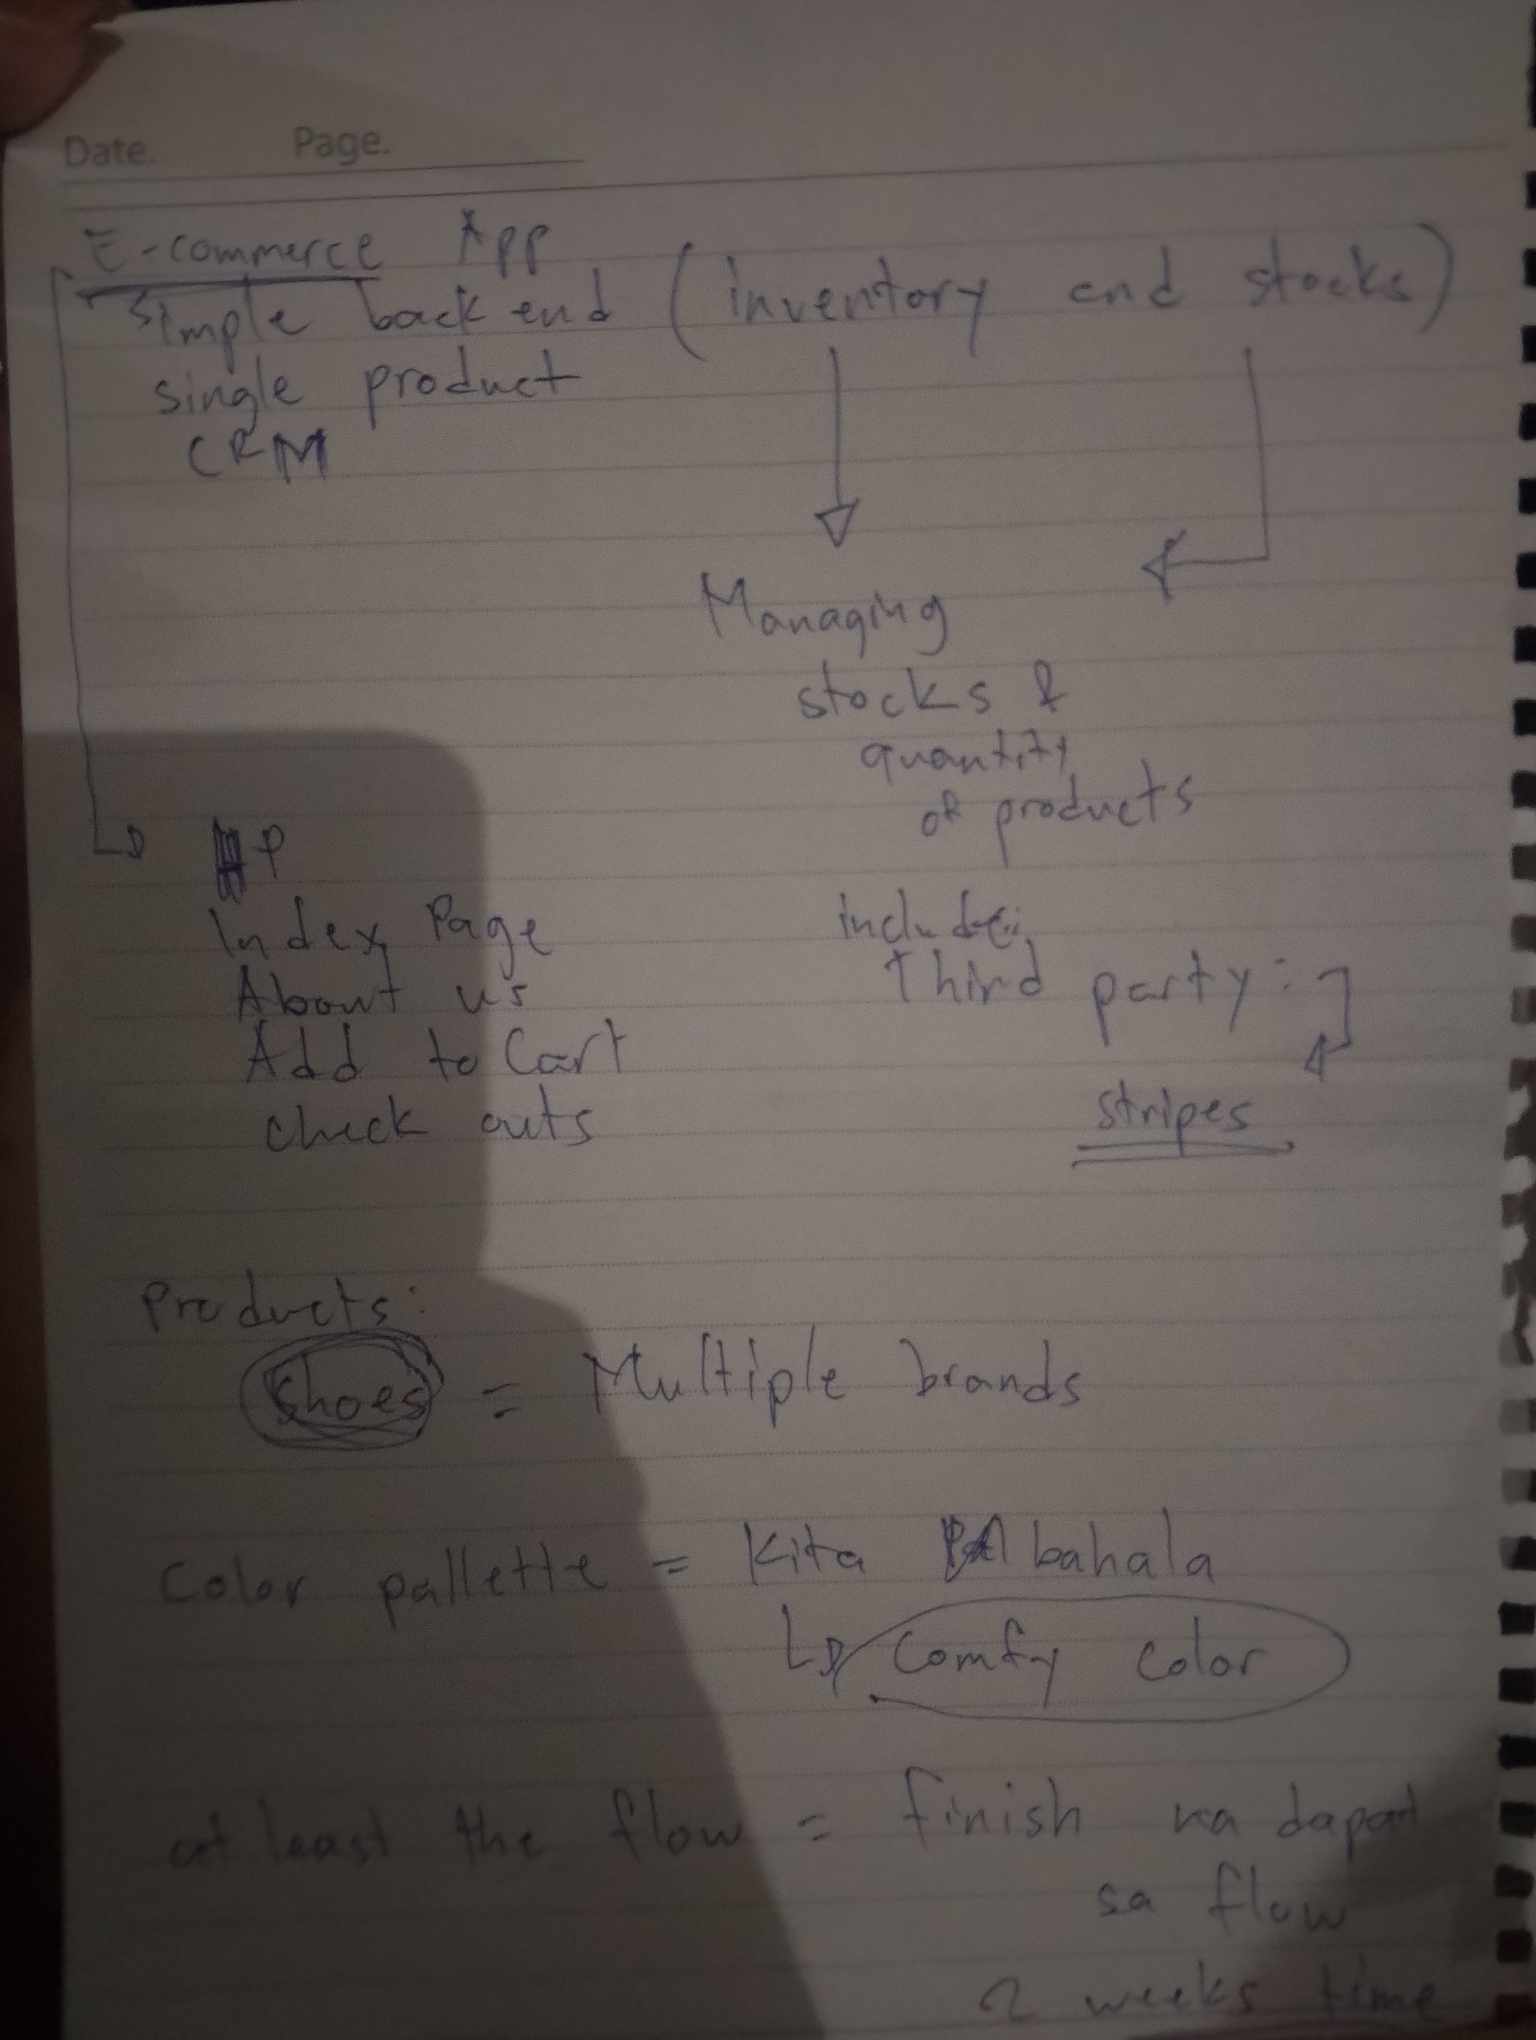 Date. Page.
E-commerce App
Simple back end (inventory and stocks)
single product
CRM
Managing
stocks &
quantity
of products
P
Index Page
About us
Add to Cart
check outs
include:
third party:
stripes
Products:
Shoes = Multiple brands
Color pallette = Kita bahala
comfy color
at least the flow = finish na dapat
sa flow
2 weeks time